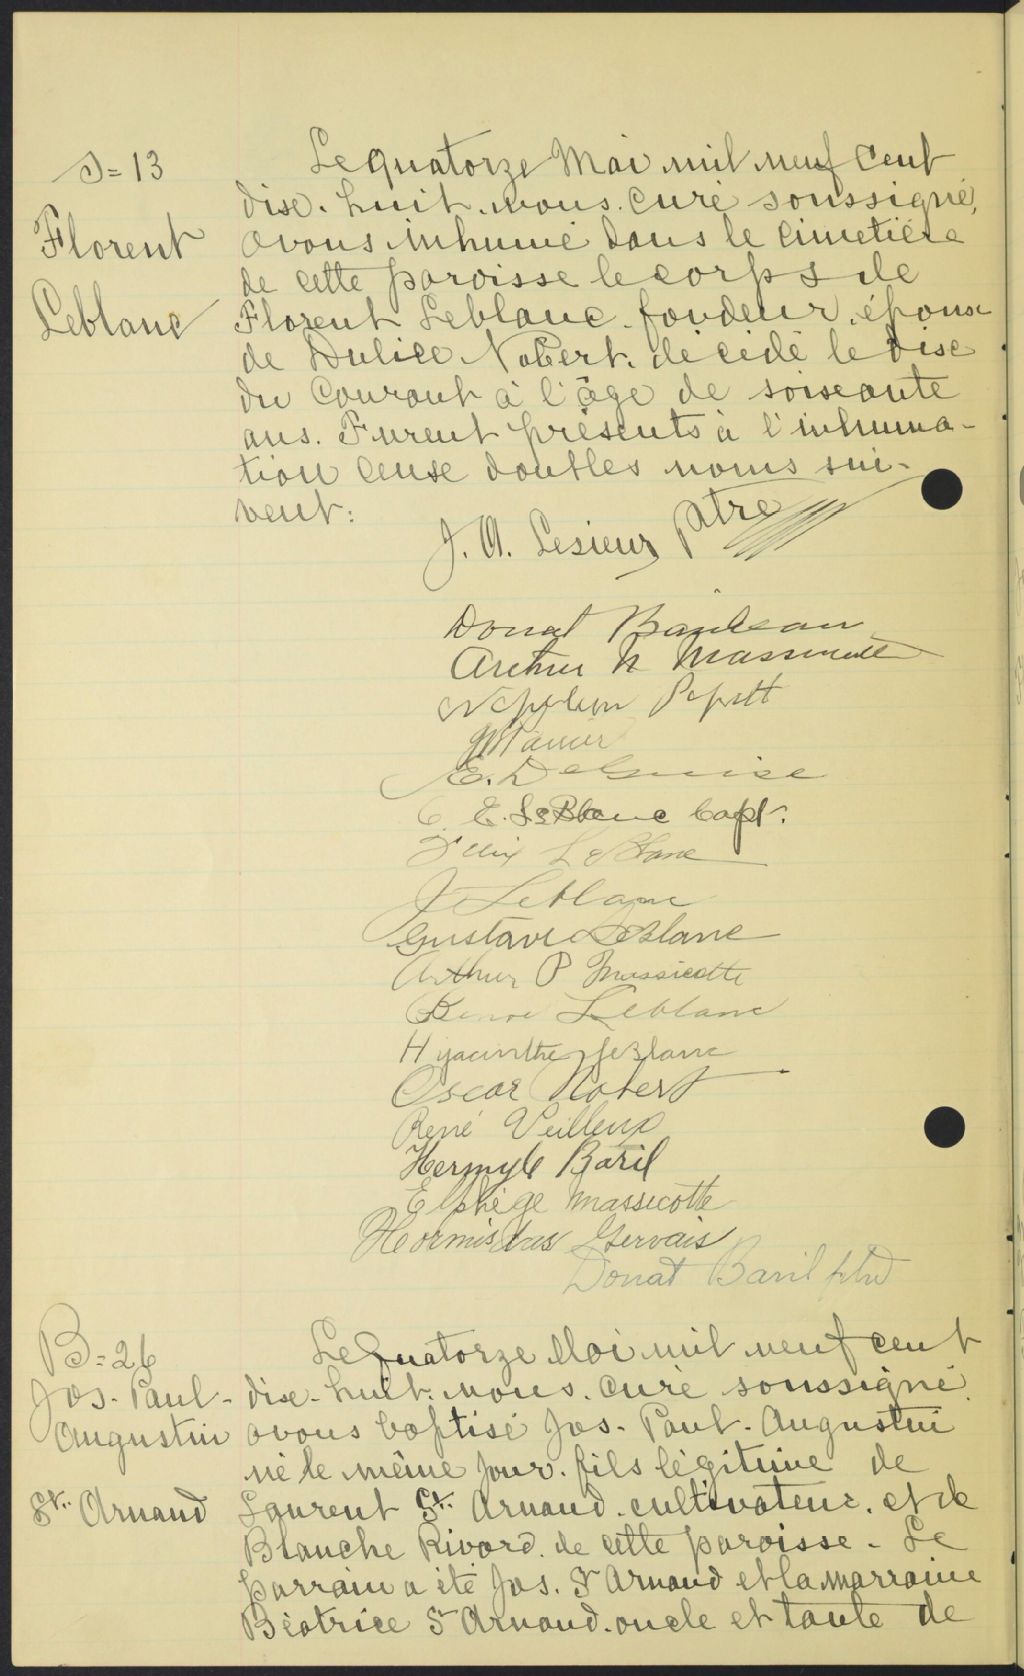 S=13
Florent
Leblanc
Le quatorze Mai mil neuf cent
dise-huit. nous. curé soussigné,
avons inhumé dans le cimetière
de cette paroisse le corps de
Florent Leblanc. fondeur. épouse
de Dulice Nobert. décédé le dise
du courant à l'âge de soiseante
ans. Furent présents à l'inhuma-
tion ceuse dont les noms sui-
vent:
J. A. Lesieur ptre
Donat
Arthur N Massicotte
E. DeGuise
E. LeBlanc Capt.
Felix LeBlanc
J Leblanc
Gustave LeBlanc
Arthur P Massicotte
Leblanc
Hyacinthe LeBlanc
Oscar Nobert
René Veilleux
Hermyle Baril
Elphège Massicotte
Hormisdas Gervais
Donat Baril ptre
B=26
Jos. Paul-
Augustin
St. Arnaud
Le Quatorze Mai mil neuf cent
dise-huit. nous. curé soussigné
avons baptisé Jos. Paul. Augustin
né le même jour. fils légitime de
Laurent St. Arnaud. cultivateur. et de
Blanche Rivard. de cette paroisse. Le
parrain a été Jos. St Arnaud et la marraine
Béatrice St Arnaud. oncle et tante de